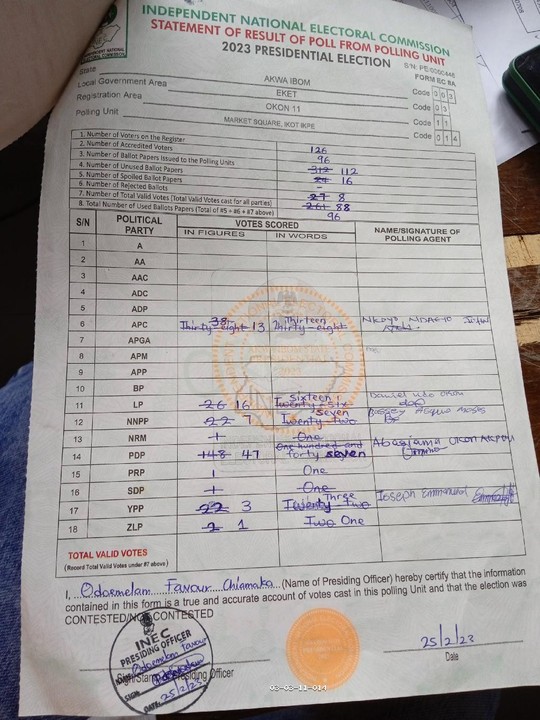 INDEPENDENT NATIONAL ELECTORAL COMMISSION
STATEMENT OF RESULT OF POLL FROM POLLING UNIT
2023 PRESIDENTIAL ELECTION
S/N: PE
FORM EC 8A
State AKWA IBOM Code 0 0 3
Local Government Area EKET Code 0 3
Registration Area OKON 11 Code 1 1
Polling Unit MARKET SQUARE, IKOT IKPE Code 0 1 4
1. Number of Voters on the Register 126
2. Number of Accredited Voters 96
3. Number of Ballot Papers Issued to the Polling Units 312 112
4. Number of Unused Ballot Papers 24 16
5. Number of Spoiled Ballot Papers -
6. Number of Rejected Ballots 27 8
7. Number of Total Valid Votes (Total Valid Votes cast for all parties) 261 88
8. Total Number of Used Ballots Papers (Total of #5 + #6 + #7 above) 96
S/N POLITICAL PARTY VOTES SCORED NAME/SIGNATURE OF POLLING AGENT
IN FIGURES IN WORDS
1 A
2 AA
3 AAC
4 ADC
5 ADP
6 APC 38 Thirty-eight 13 Thirteen Thirty-eight
7 APGA
8 APM
9 APP
10 BP
11 LP 26 16 sixteen Twenty-six Daniel Udo Okon
12 NNPP 22 7 seven Twenty-two
13 NRM 1 One
14 PDP 148 47 One hundred and forty seven Abasiama Okon
15 PRP 1 One
16 SDP 1 One Joseph Emmanuel
17 YPP 22 3 Three Twenty-two
18 ZLP 2 1 Two One
TOTAL VALID VOTES
(Record Total Valid Votes under #7 above)
I, Odosmelam Favour Chiamaka (Name of Presiding Officer) hereby certify that the information
contained in this form is a true and accurate account of votes cast in this polling Unit and that the election was
CONTESTED/NOT CONTESTED
INEC
PRESIDING OFFICER
NAME
SIGN
DATE 25/2/23
Sign/Stamp of Presiding Officer
25/2/23
Date
03-03-11-014